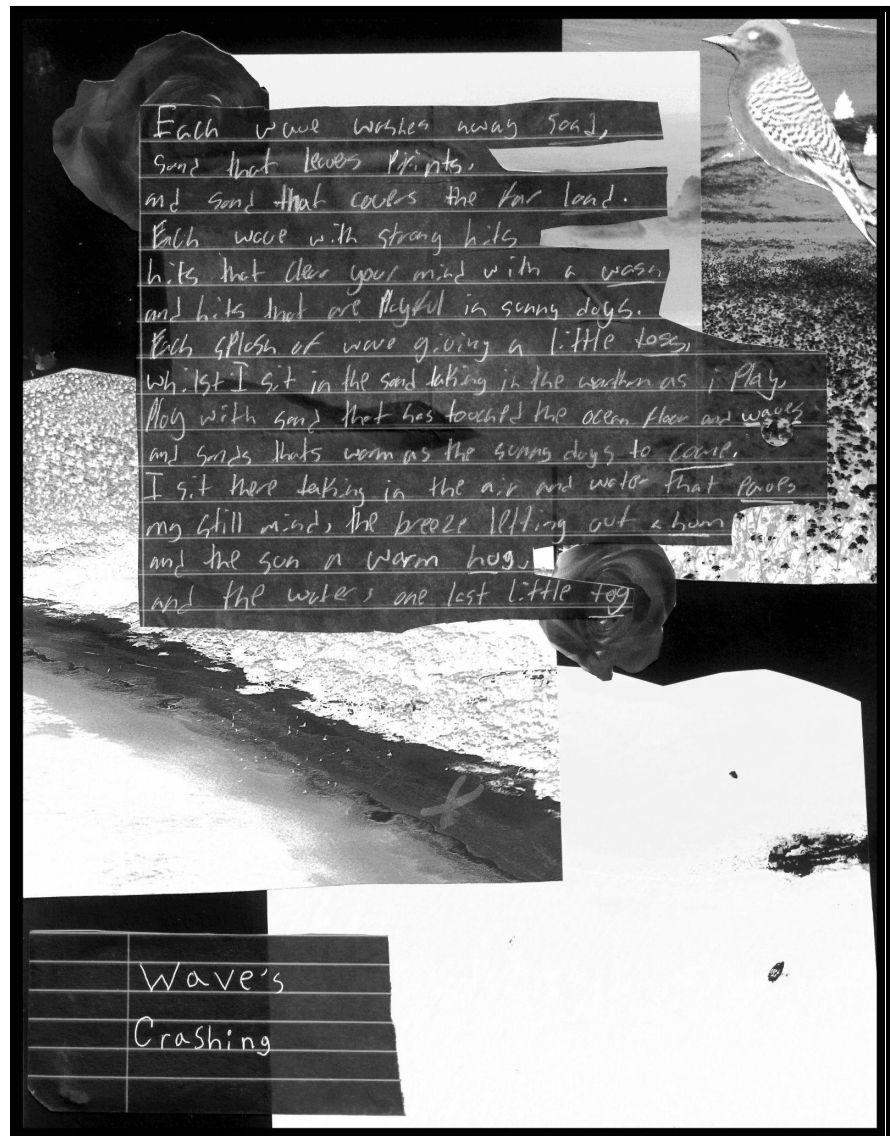 Each wave washes away sand,
sand that leaves Prints,
and sand that covers the far land.
Each wave with strong hits
hits that clear your mind with a wash
and hits that are Playful in sunny days.
Each splash of wave giving a little toss,
whilst I sit in the sand taking in the warthm as i Play,
Play with sand that has touched the ocean floor and waves
and sands thats warm as the sunny days to come.
I sit there taking in the air and water that Paves
my still mind, the breeze letting out a hum
and the sun a warm hug,
and the waters one last little tog
Wave's
Crashing